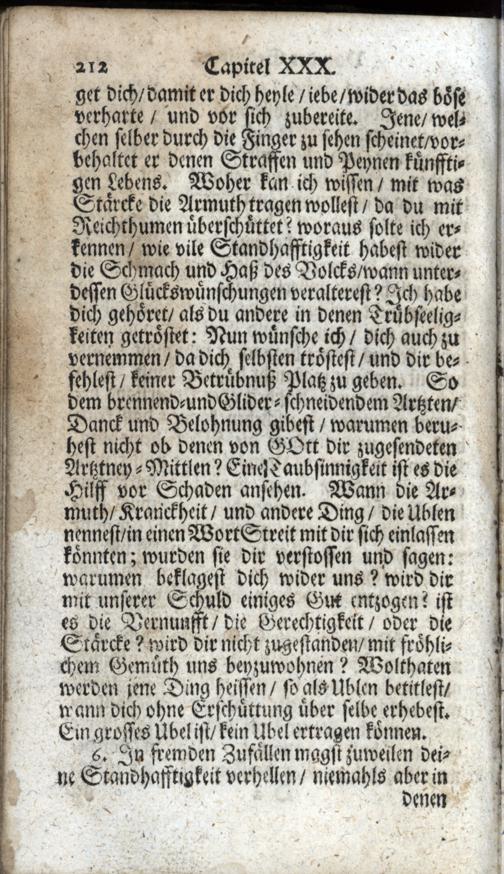 212 Capitel XXX.
get dich/damit er dich heyle/iebe/wider das böse
verharte / und vor sich zubereite. Jene/wel-
chen selber durch die Finger zu sehen scheinet/vor-
behaltet er denen Straffen und Peynen künffti-
gen Lebens. Woher kan ich wissen / mit was
Stärcke die Armuth tragen wollest / da du mit
Reichthumen überschüttet? woraus solte ich er-
kennen / wie vile Standhafftigkeit habest wider
die Schmach und Haß des Volcks/wann unter-
dessen Glückswünschungen veralterest? Ich habe
dich gehöret/ als du andere in denen Trübseelig-
keiten getröstet: Nun wünsche ich / dich auch zu
vernemmen / da dich selbsten tröstest / und dir be-
fehlest / keiner Betrübnuß Platz zu geben. So
dem brennend-und Glider-schneidendem Artzten/
Danck und Belohnung gibest / warumen beru-
hest nicht ob denen von GOtt dir zugesendeten
Artztney-Mittlen? Eine Taubsinnigkeit ist es die
Hilff vor Schaden ansehen. Wann die Ar-
muth/ Kranckheit / und andere Ding / die Ublen
nennest/in einen WortStreit mit dir sich einlassen
könnten; wurden sie dir verstossen und sagen:
warumen beklagest dich wider uns? wird dir
mit unserer Schuld einiges Gut entzogen? ist
es die Vernunfft/ die Gerechtigkeit / oder die
Stärcke? wird dir nicht zugestanden/ mit fröhli-
chem Gemüth uns beyzuwohnen? Wolthaten
werden jene Ding heissen / so als Ublen betitlest/
wann dich ohne Erschüttung über selbe erhebest.
Ein grosses Ubel ist/ kein Ubel ertragen können.
6. In fremden Zufällen magst zuweilen dei-
ne Standhafftigkeit verhellen / niemahls aber in
denen